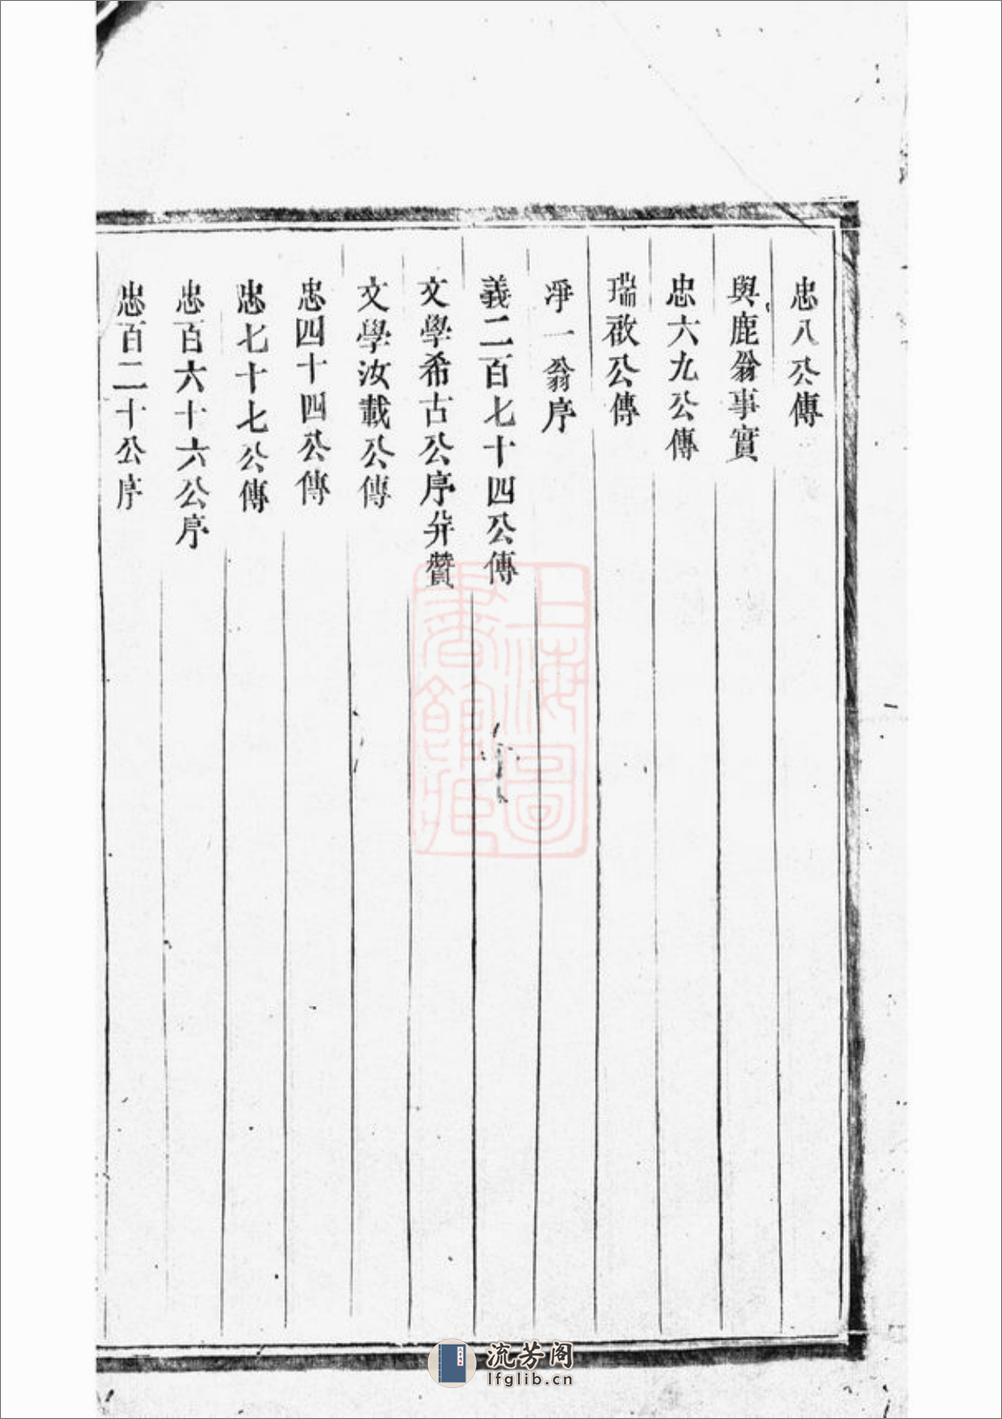 忠八公傳
與鹿翁事實
忠六九公傳
瑞啟公傳
淨一翁序
義二百七十四公傳
文學希古公序并贊
文學汝載公傳
忠四十四公傳
忠七十七公傳
忠百六十六公序
忠百二十公序
上海圖書館藏
流芳阁
lfglib.cn